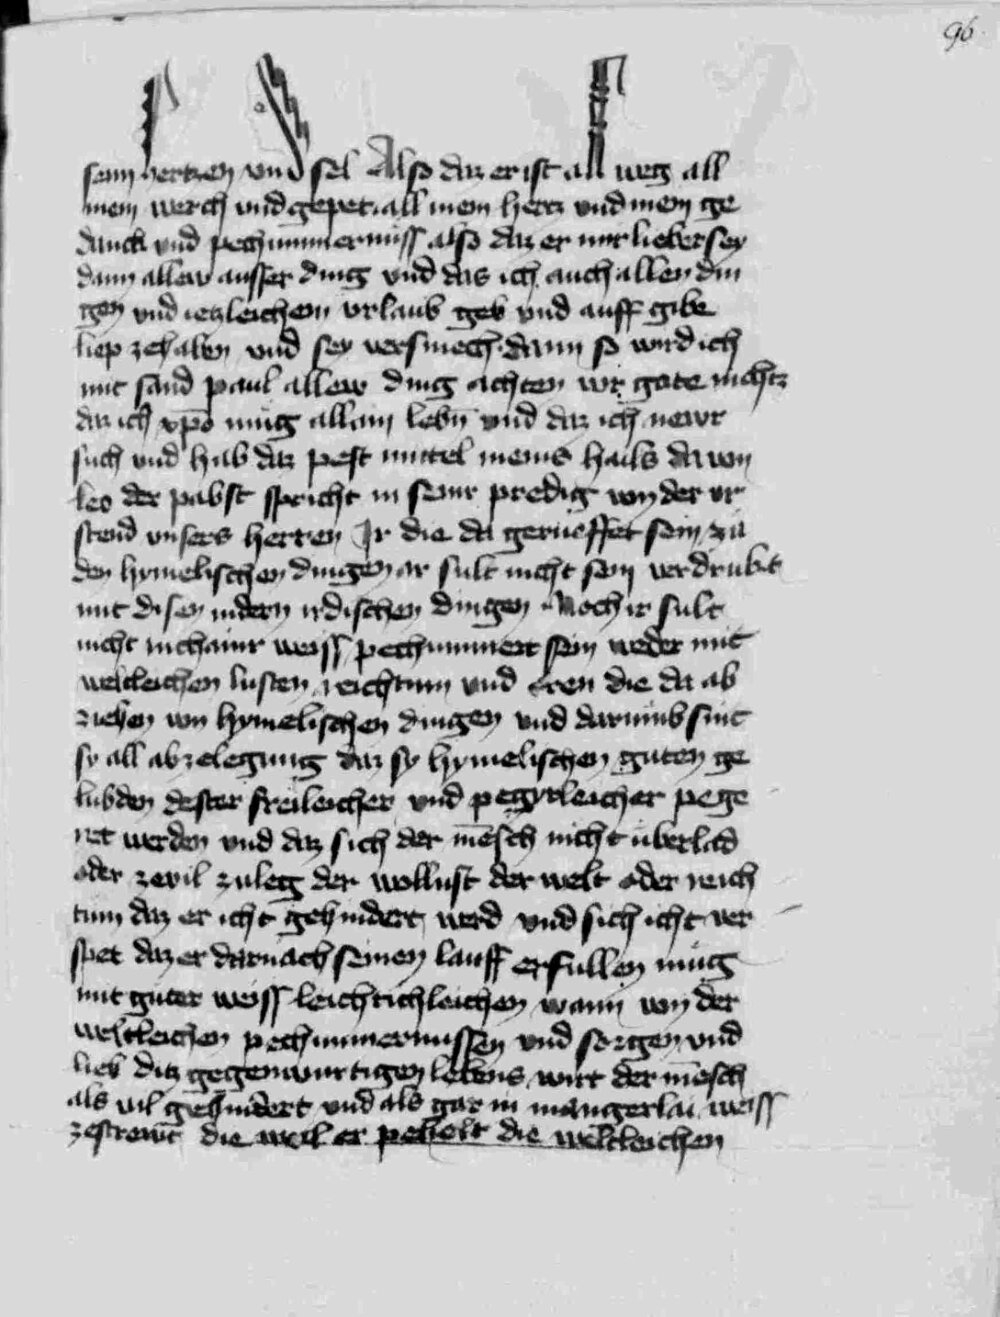 96
seim hertzen vnd sel Also daz er ist all weg all
mein werch vnd gepet all mein hertz vnd mein ge
danck vnd pechummernuss also daz er mir lieber sey
dann allew ausser ding vnd das ich auch allen din
gen vnd ietzleichem vrlaub geb vnd auff gibe
liep zehaben vnd sey versmech dann so wird ich
mit sand paul allew ding achten wie gate nichtz
daz ich xpo mug allain lebn vnd daz ich newr
such vnd hab daz pest mittel meins hails da von
leo der pabst spricht in seinr predig von der vr
stend vnsers herren Ir die da gerueffet sein zu
den hymelischen dingen ir sult nicht sein verdrubt
mit disen nidern irdischen dingen Noch ir sult
nicht inchainr weiss pechummert sein weder mit
weltleichen lusten reichtum vnd eren die da ab
ziehen von hymelischen dingen vnd darumb sint
sy all abzelegung daz sy hymelischen guten ge
lubden dester freileicher vnd pegyrleicher pege
ret werden vnd daz sich der mensch nicht uberlad
oder zevil zuleg der wollust der welt oder reich
tum daz er icht gehindert werd vnd sich icht ver
spet daz er darnach seinen lauff erfullen mug
mit guter weiss leichtichleichen wann von der
weltleichen pechummernussen vnd sorgen vnd
lieb ditz gegenwurtigen lebens wirt der mensch
als vil gehindert vnd als gar in mangerlai weiss
zestrewt die weil er pehelt die weltleichen